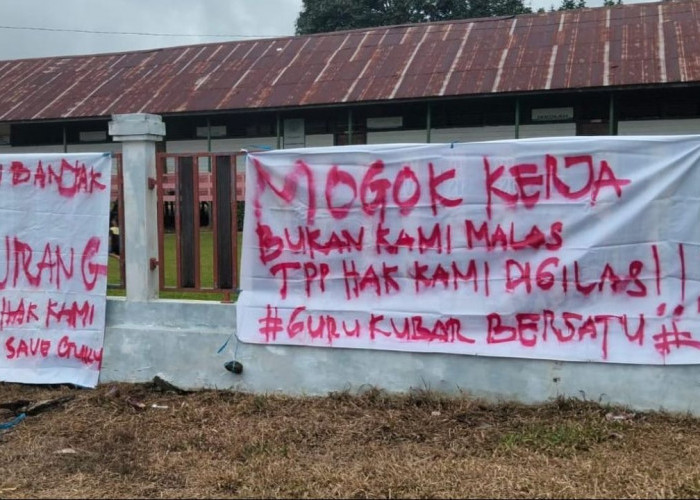 BANYAK
URANG
HAK KAMI
SAVE GURU
MOGOK KERJA
BUKAN KAMI MALAS
TPP HAK KAMI DIGILAS!!
#GURU KUBAR BERSATU!!#